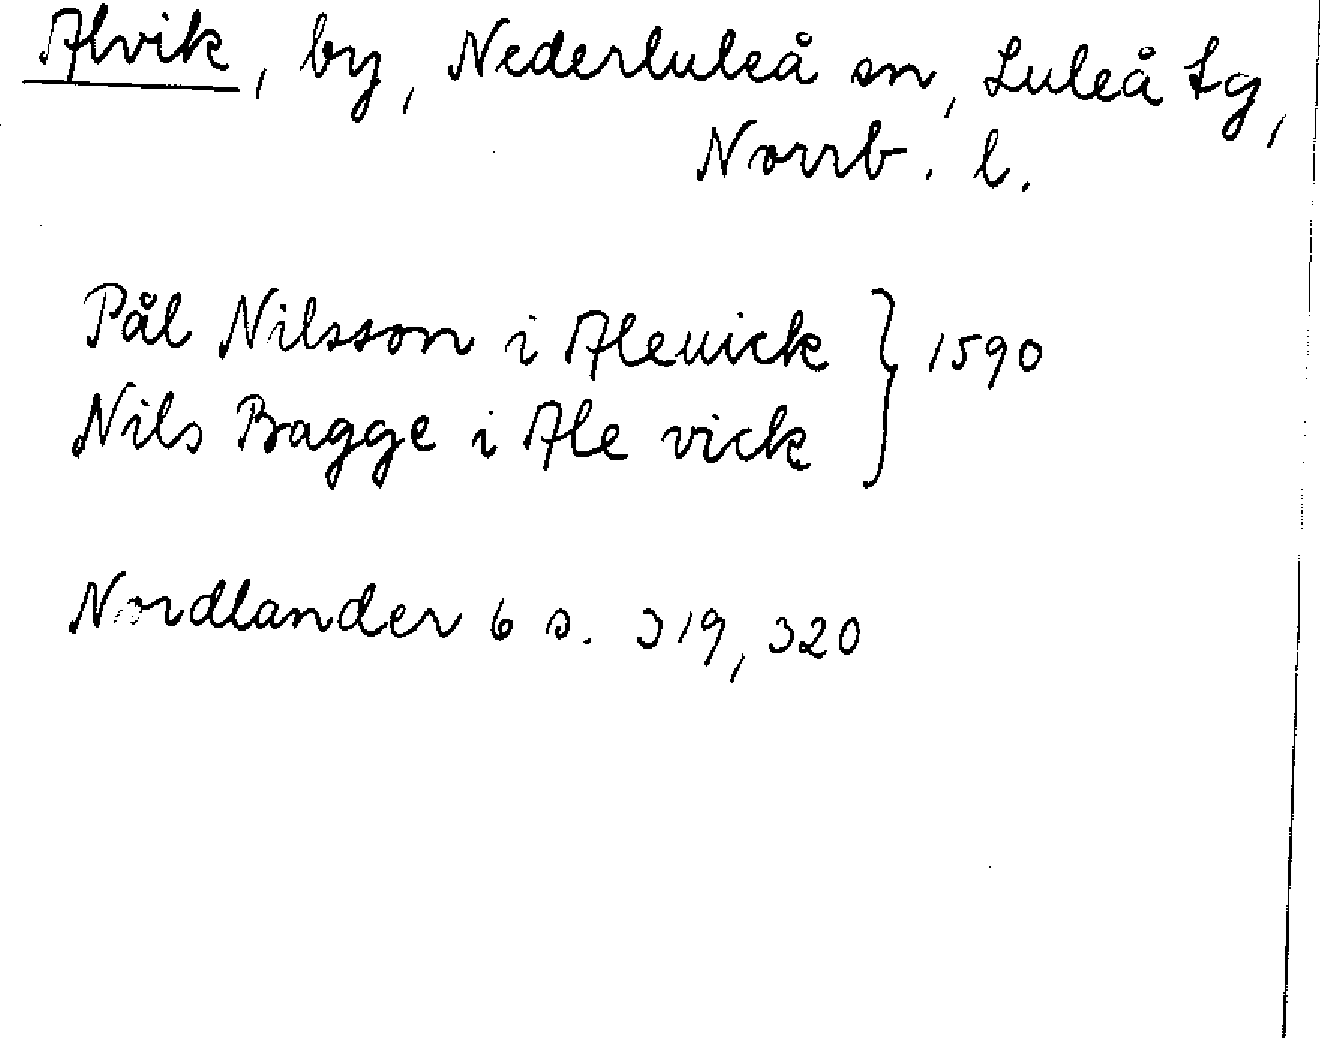 Alvik, by, Nederluleå sn, Luleå tg,
Norrb. l.
Pål Nilsson i Aleuick } 1590
Nils Bagge i Ale vick
Nordlander 6 s. 319, 320